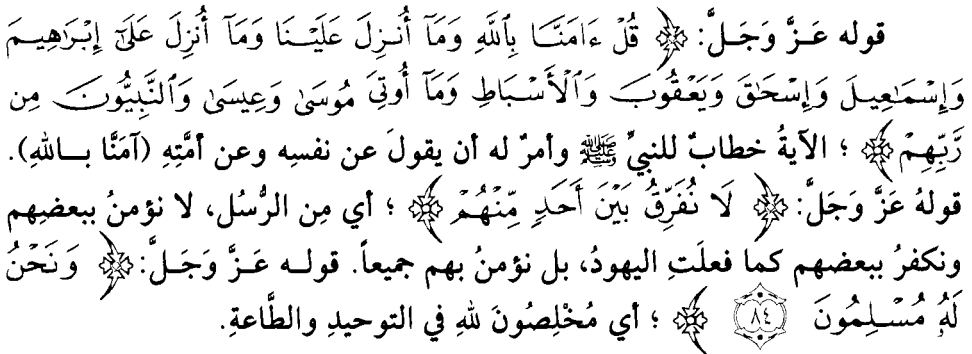 قوله عَزَّ وَجَلَّ: ﴿ قُلْ ءَامَنَّا بِٱللَّهِ وَمَآ أُنزِلَ عَلَيْنَا وَمَآ أُنزِلَ عَلَىٰٓ إِبْرَٰهِيمَ
وَإِسْمَٰعِيلَ وَإِسْحَٰقَ وَيَعْقُوبَ وَٱلْأَسْبَاطِ وَمَآ أُوتِيَ مُوسَىٰ وَعِيسَىٰ وَٱلنَّبِيُّونَ مِن
رَّبِّهِمْ ﴾ ؛ الآيةُ خطابٌ للنبيِّ ﷺ وأمرٌ له أن يقولَ عن نفسِه وعن أمَّتِهِ (آمَنَّا بالله).
قولهُ عَزَّ وَجَلَّ: ﴿ لَا نُفَرِّقُ بَيْنَ أَحَدٍ مِّنْهُمْ ﴾ ؛ أي مِن الرُّسُل، لا نؤمنُ ببعضِهم
ونكفرُ ببعضهم كما فعلَتِ اليهودُ، بل نؤمنُ بهم جميعاً. قوله عَزَّ وَجَلَّ: ﴿ وَنَحْنُ
لَهُۥ مُسْلِمُونَ ٨٤ ﴾ ؛ أي مُخْلِصُونَ للهِ في التوحيدِ والطَّاعةِ.